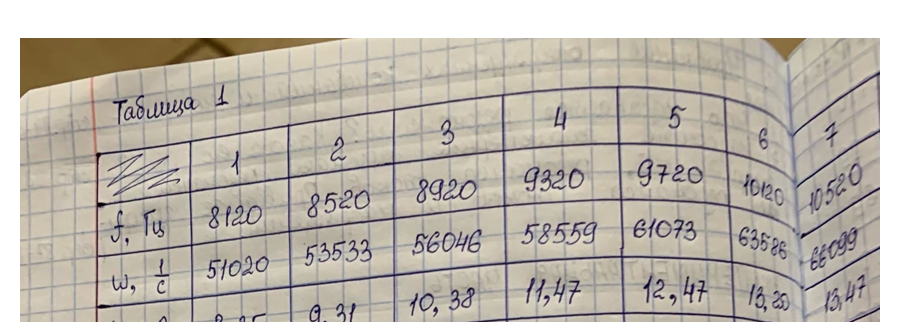 Таблица 1
1 2 3 4 5 6 7
f, Гц 8120 8520 8920 9320 9720 10120 10520
ω, 1/с 51020 53533 56046 58559 61073 63586 66099
9,31 10,38 11,47 12,47 13,20 13,47